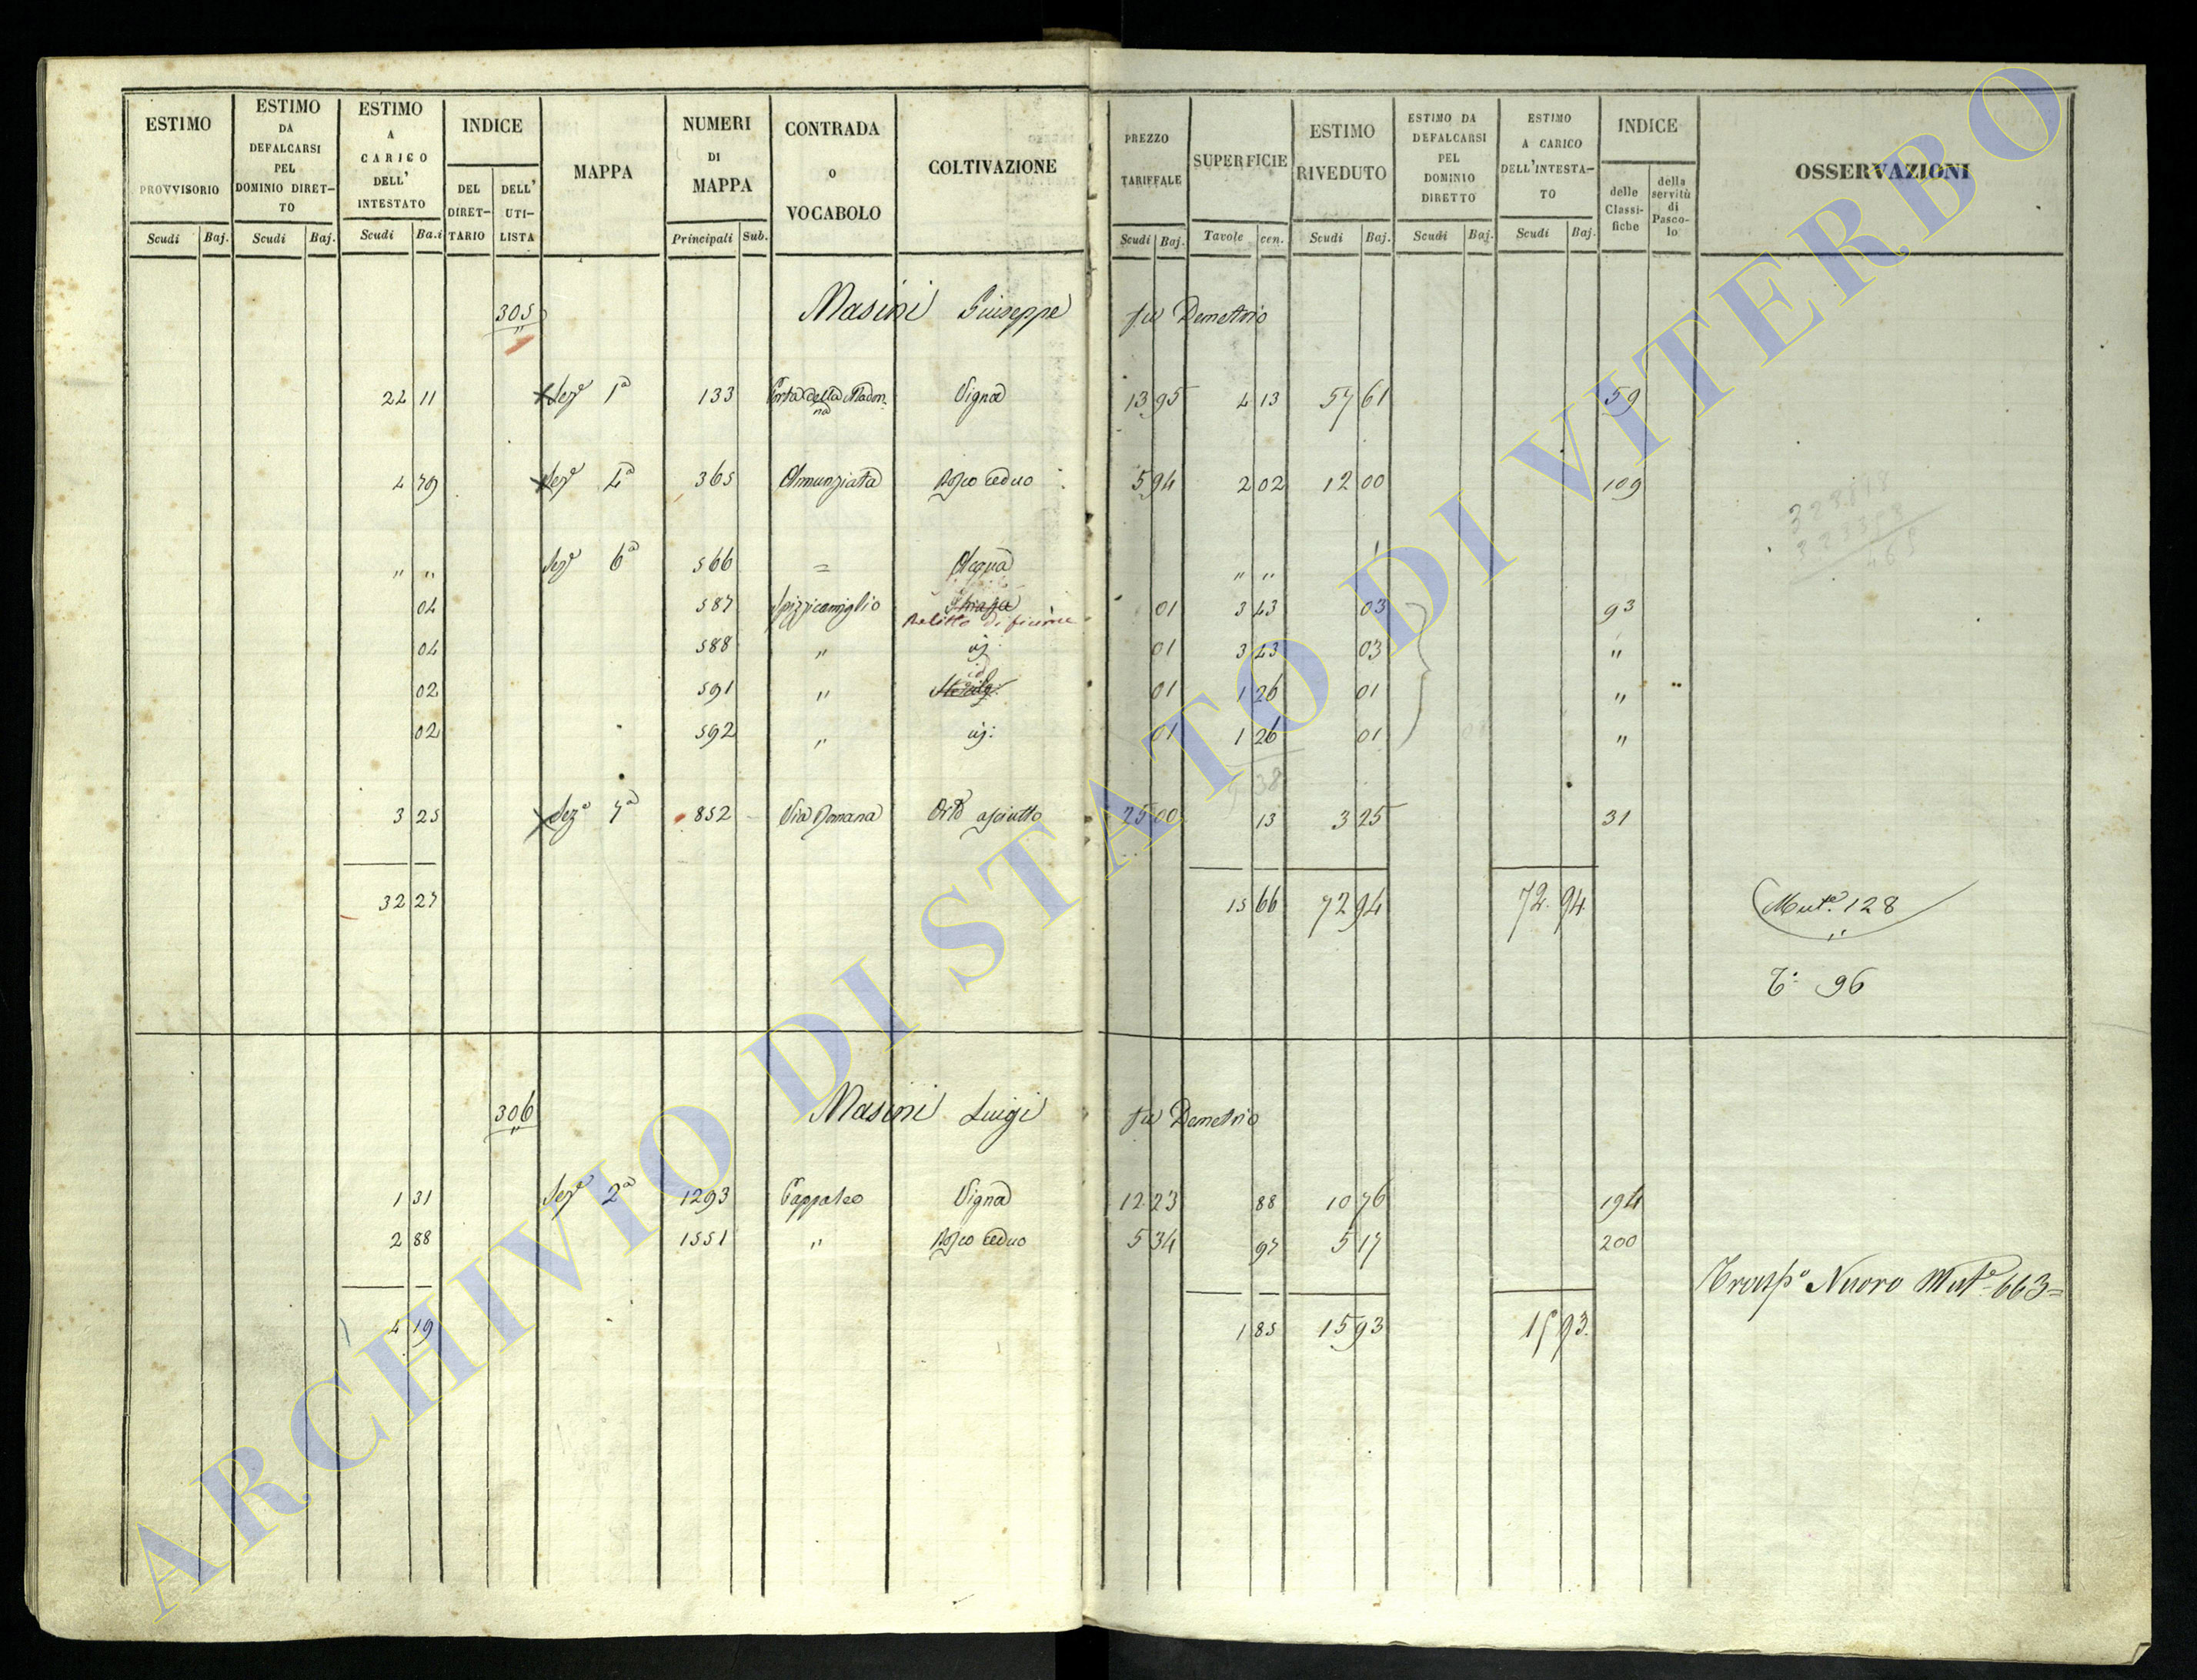 ESTIMO PROVVISORIO
ESTIMO DA DEFALCARSI PEL DOMINIO DIRET-TO
ESTIMO A CARICO DELL' INTESTATO
INDICE
DEL DIRET-TARIO
DELL' UTI-LISTA
MAPPA
NUMERI DI MAPPA
CONTRADA o VOCABOLO
COLTIVAZIONE
PREZZO TARIFFALE
SUPERFICIE
ESTIMO RIVEDUTO
ESTIMO DA DEFALCARSI PEL DOMINIO DIRETTO
ESTIMO A CARICO DELL'INTESTA-TO
INDICE
delle Classi-fiche
della servitù di Pasco-lo
OSSERVAZIONI
Scudi Baj. Scudi Baj. Scudi Ba.i Principali Sub. Scudi Baj. Tavole cen. Scudi Baj. Scudi Baj. Scudi Baj.
305 Masini Giuseppe fu Demetrio
22 11 Seze 1a 133 Porta della Madon-na Vigna 13 95 4 13 57 61 59
4 79 Seze 4a 365 Annunziata Bosco ceduo 5 94 2 02 12 00 109
" " Seze 6a 566 = Acqua " "
04 587 Spizzicamiglio Relitto di fiume 01 3 43 03 93
04 588 " 01 3 43 03 "
02 591 " id 01 1 26 01 "
02 592 " 01 1 26 01 "
38
3 25 Seze 7a 852 Via Romana Orto asciutto 25 00 13 3 25 31
32 27 15 66 72 94 72. 94 Mute. 128
T: 96
306 Masini Luigi fu Demetrio
1 31 Seze 2a 1293 Pappaleo Vigna 12 23 88 10 76 194
2 88 1551 " Bosco ceduo 5 34 97 5 17 200
Traspo Nuovo Mute 663=
4 19 1 85 15 93 15 93.
ARCHIVIO DI STATO DI VITERBO